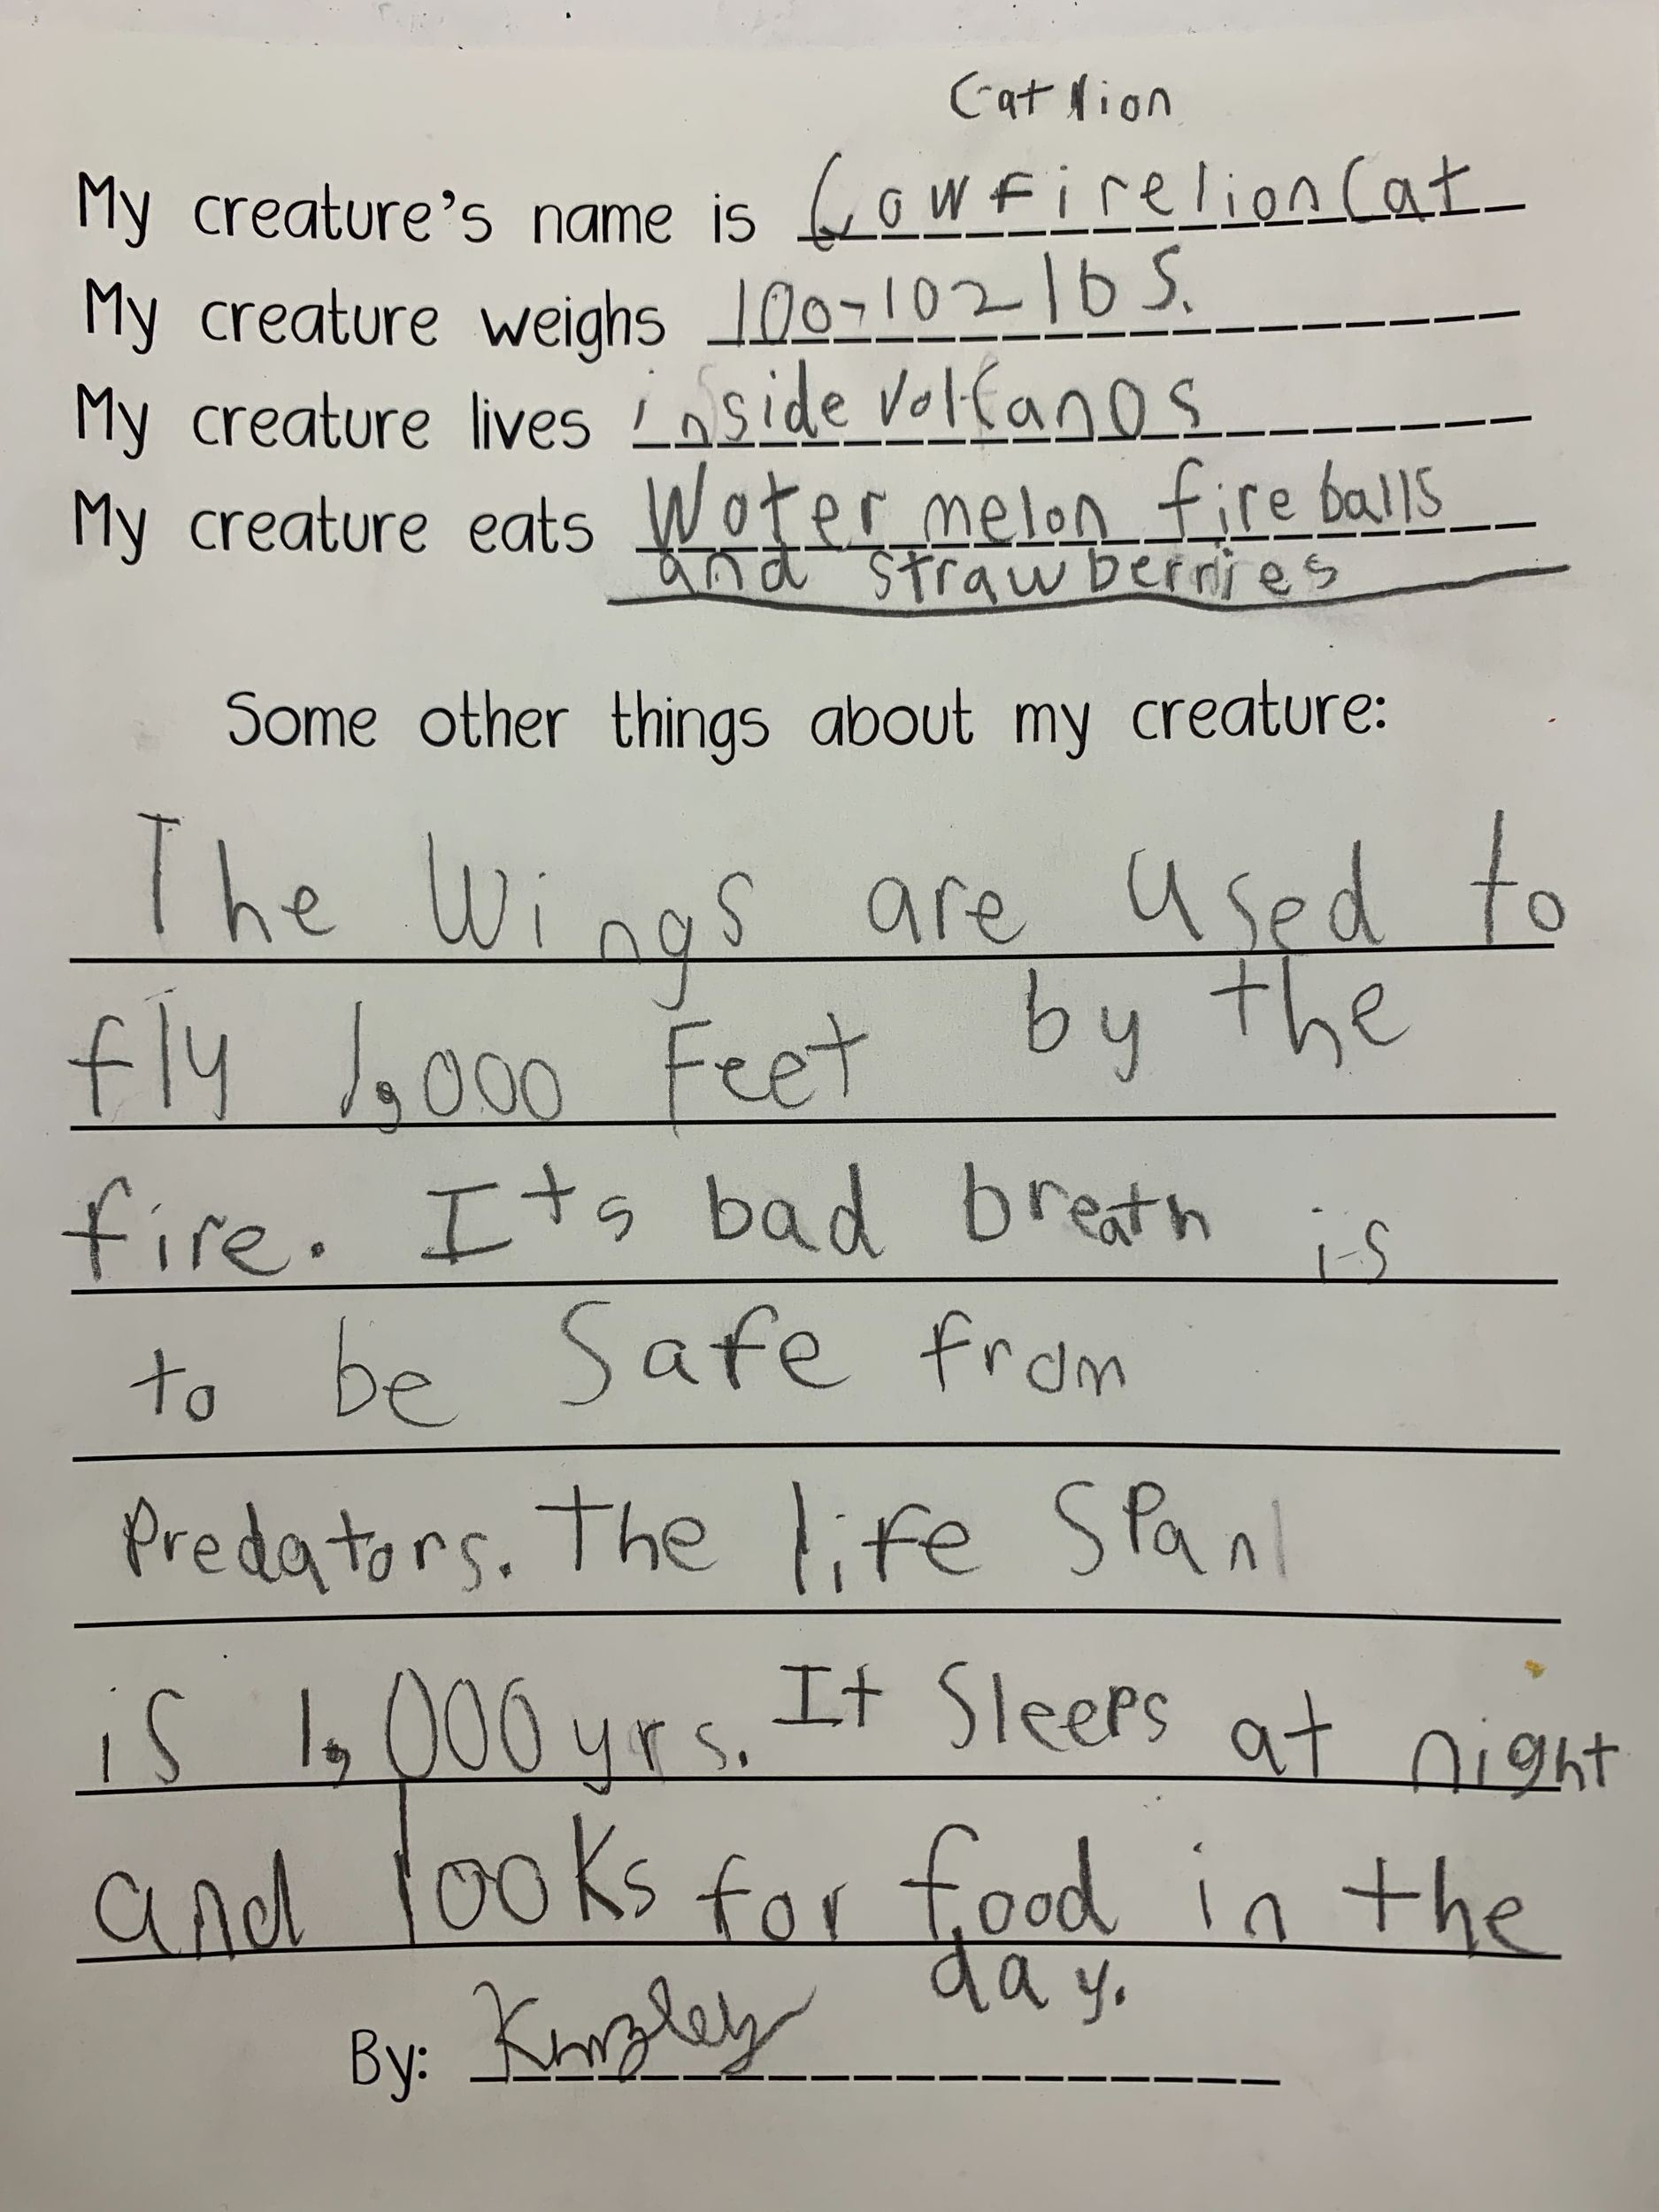 Cat lion
My creature's name is CowFirelionCat
My creature weighs 100-102 lbs.
My creature lives inside volcanos
My creature eats Water melon fire balls
and strawberries
Some other things about my creature:
The Wings are used to
fly 1,000 Feet by the
fire. It's bad breath is
to be Safe from
Predators. The life SPan
is 1,000 yrs. It Sleeps at night
and looks for food in the
day.
By: Kinzley